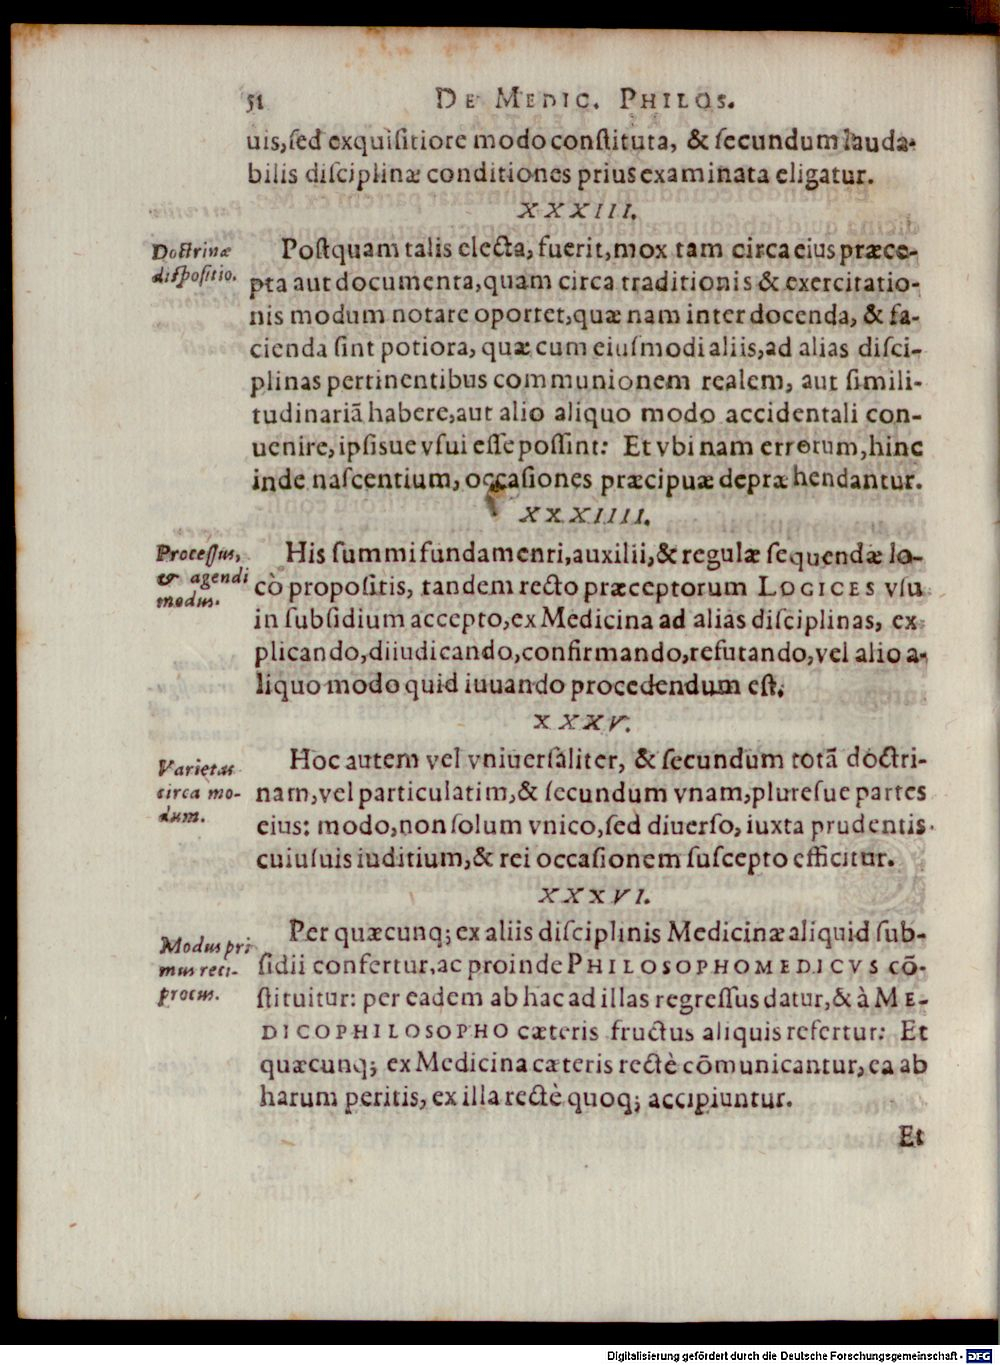 51 DE MEDIC. PHILOS.
uis, ſed exquiſitiore modo conſtituta, & ſecundum lauda-
bilis diſciplinæ conditiones prius examinata eligatur.
XXXIII.
Doctrinæ
diſpoſitio.
Poſtquam talis electa, fuerit, mox tam circa eius præce-
pta aut documenta, quam circa traditionis & exercitatio-
nis modum notare oportet, quæ nam inter docenda, & fa-
cienda ſint potiora, quæ cum eiuſmodi aliis, ad alias diſci-
plinas pertinentibus communionem realem, aut ſimili-
tudinariā habere, aut alio aliquo modo accidentali con-
uenire, ipſisue vſui eſſe poſſint: Et vbi nam errorum, hinc
inde naſcentium, occaſiones præcipuæ depræhendantur.
XXXIIII.
Proceſſus,
& agendi
modus.
His ſummi fundamenti, auxilii, & regulæ ſequendæ lo-
cò propoſitis, tandem recto præceptorum LOGICES vſu
in ſubſidium accepto, ex Medicina ad alias diſciplinas, ex
plicando, diiudicando, confirmando, refutando, vel alio a-
liquo modo quid iuuando procedendum eſt.
XXXV.
Varietas
circa mo-
dum.
Hoc autem vel vniuerſaliter, & ſecundum totā doctri-
nam, vel particulatim, & ſecundum vnam, plureſue partes
eius: modo, non ſolum vnico, ſed diuerſo, iuxta prudentis
cuiuſuis iuditium, & rei occaſionem ſuſcepto efficitur.
XXXVI.
Modus pri
mus reci-
procus.
Per quæcunq; ex aliis diſciplinis Medicinæ aliquid ſub-
ſidii confertur, ac proinde PHILOSOPHOMEDICVS cō-
ſtituitur: per eadem ab hac ad illas regreſſus datur, & à ME-
DICOPHILOSOPHO cæteris fructus aliquis refertur: Et
quæcunq; ex Medicina cæteris rectè cōmunicantur, ea ab
harum peritis, ex illa rectè quoq; accipiuntur.
Et
Digitalisierung gefördert durch die Deutsche Forschungsgemeinschaft - DFG